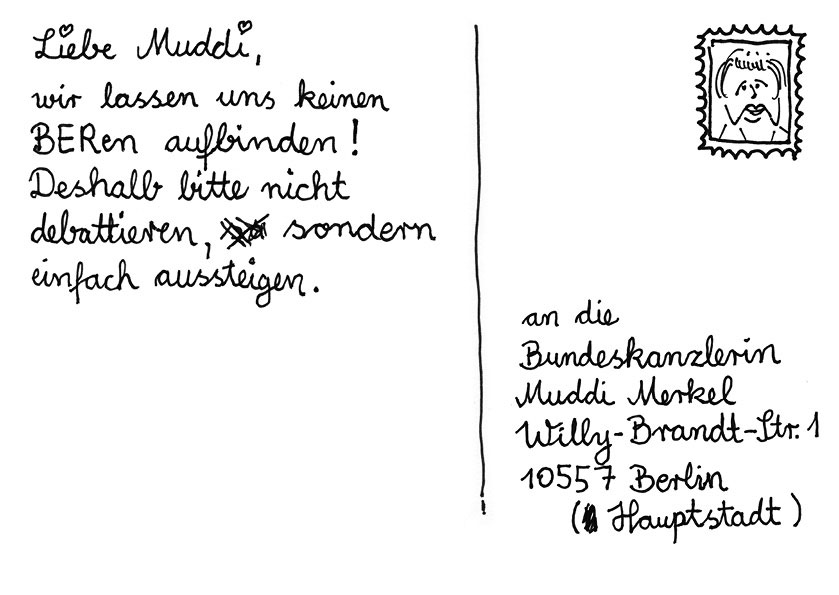 Liebe Muddi,
wir lassen uns keinen
BERen aufbinden!
Deshalb bitte nicht
debattieren, sondern
einfach aussteigen.
an die
Bundeskanzlerin
Muddi Merkel
Willy-Brandt-Str. 1
10557 Berlin
(Hauptstadt)